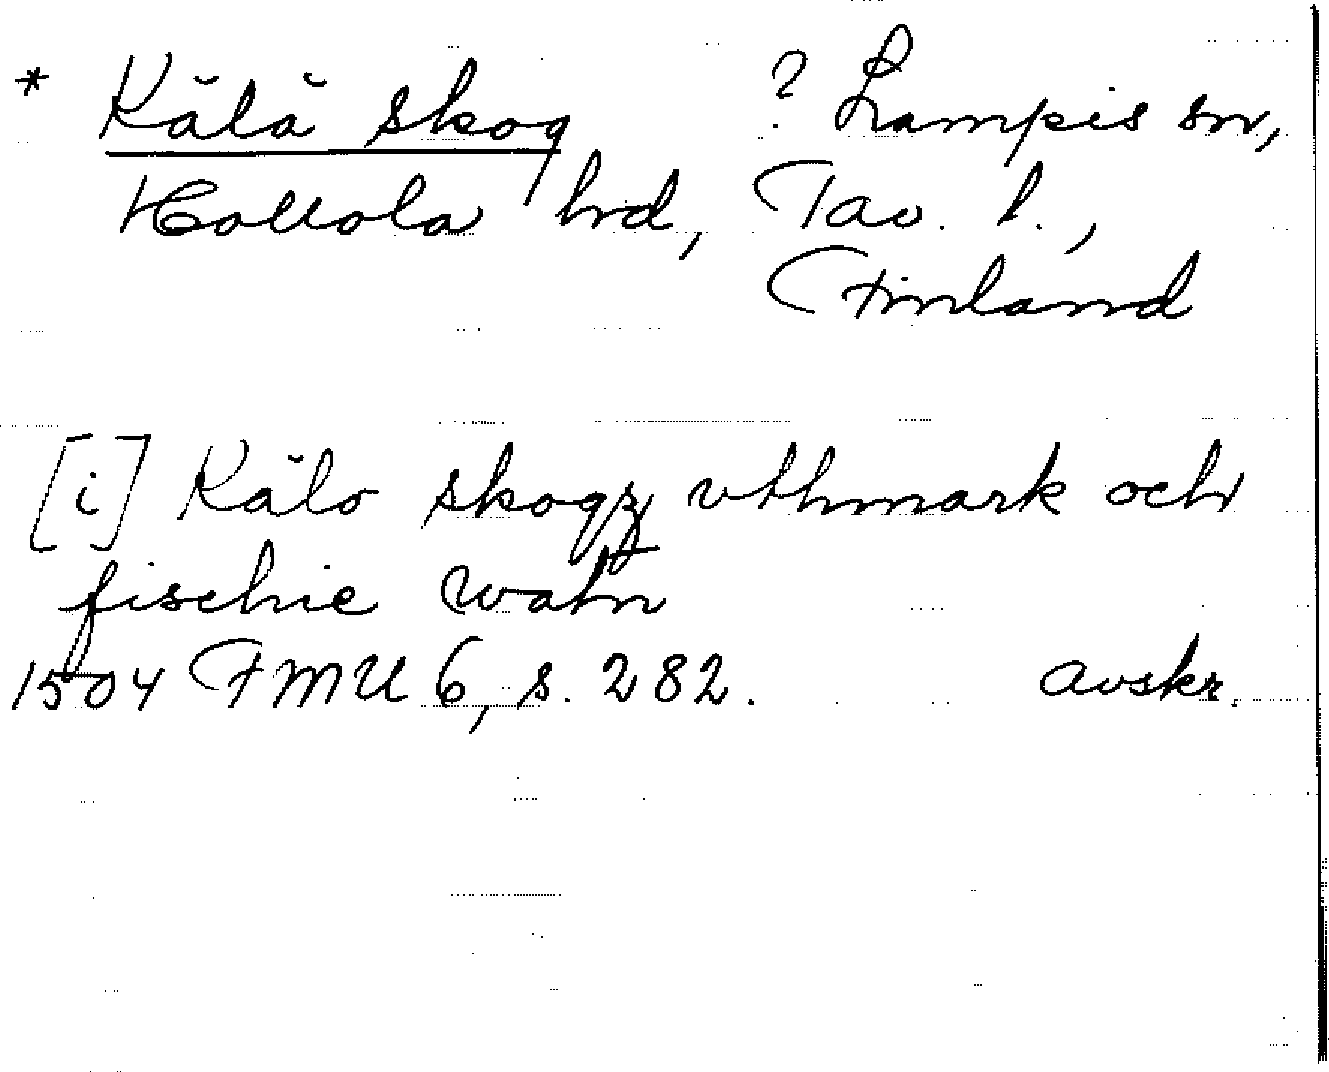 * Kälä skog ? Lampis sn,
Hollola hrd, Tav. l.,
Finland
[i] Kälo skogz vthmark och
fischie watn
1504 FMU 6, s. 282. avskr.